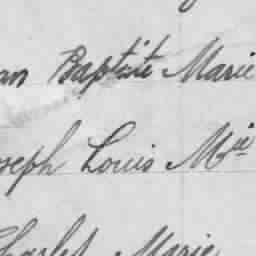 an Baptiste Marie
oseph Louis Mie
Charles Marie